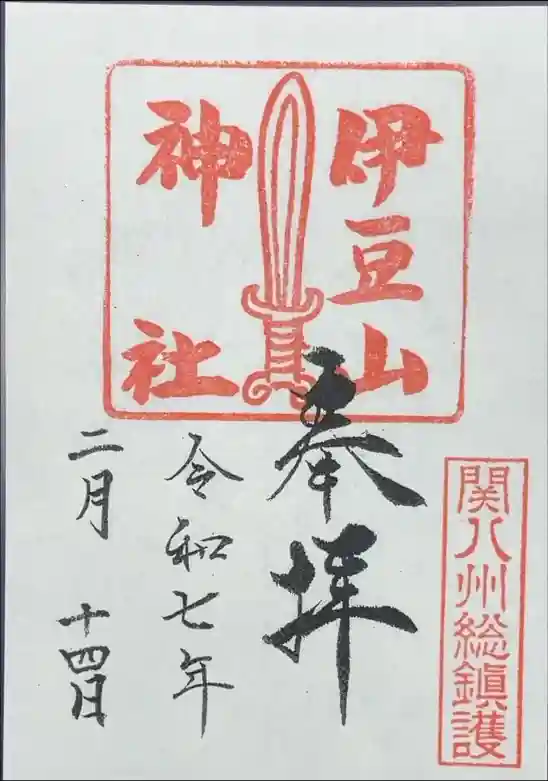 伊豆山
神社
関八州総鎮護
奉拝
令和七年
二月十四日